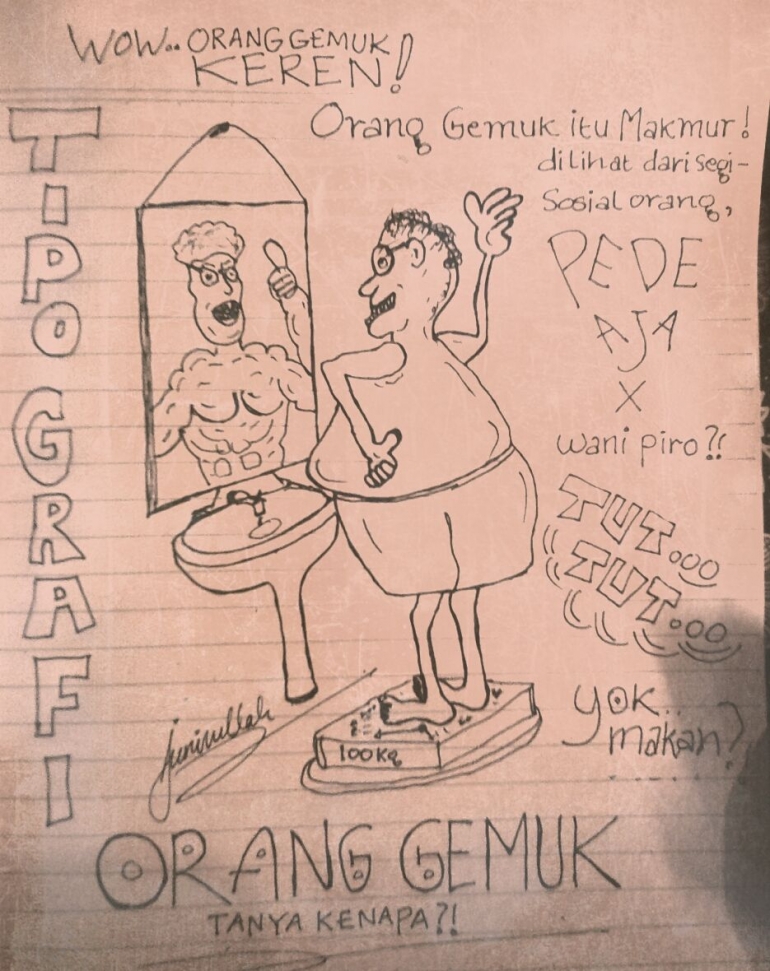 WOW.. ORANG GEMUK
KEREN!
TIPOGRAFI
Orang Gemuk itu Makmur!
dilihat dari segi-
Sosial orang,
PEDE
AJA
X
wani piro?!
TUT...ooo
TUT...oo
yok..
makan?
100Kg
ORANG GEMUK
TANYA KENAPA?!